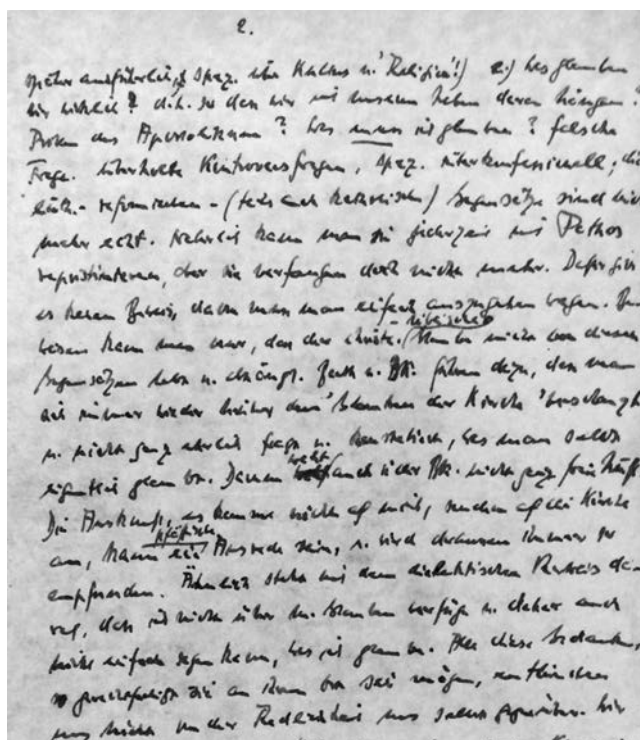 2.
später ausführlich, spez. über Kultus u. 'Religion'!) e.) Was glauben
wir wirklich? d.h. so daß wir mit unserem Leben daran hängen?
Problem des Apostolikum? Was muss ich glauben? falsche
Frage. überholte Kontroversfragen, spez. interkonfessionell; die
luth.- reformierten - (teils auch katholischen) Gegensätze sind nicht
mehr echt. Natürlich kann man sie jederzeit mit Pathos
repristinieren, aber sie verfangen doch nicht mehr. Dafür gibt
es keinen Beweis, davon muss man einfach auszugehen wagen. Be-
weisen kann man nur, daß der christl.-biblische Glaube nicht von diesen
Gegensätzen lebt u. abhängt. Barth u. BK. führen dazu, daß man
sich immer wieder hinter den 'Glauben der Kirche' verschanzt
u. nicht ganz ehrlich fragt u. konstatiert, was man selbst
eigentlich glaubt. Darum weht auch in der BK. nicht ganz freie Luft.
Die Auskunft, es komme nicht auf mich, sondern auf die Kirche
an, kann eine pfäffische Ausrede sein, u. wird draussen immer so
empfunden. Ähnlich steht mit dem dialektischen Hinweis da-
rauf, daß ich nicht über m. Glauben verfüge u. daher auch
nicht einfach sagen kann, was ich glaube. Alle diese Gedanken,
so gerechtfertigt sie an ihrem Ort sein mögen, entbinden
uns nicht von der Redlichkeit uns selbst gegenüber. Wir